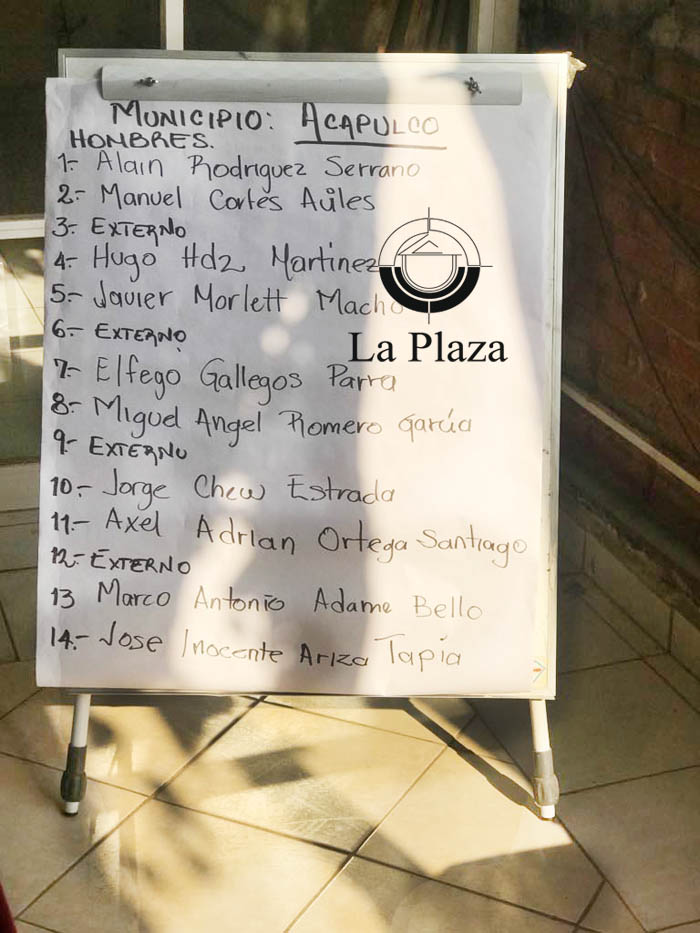 MUNICIPIO: ACAPULCO
HOMBRES.
1.- Alain Rodriguez Serrano
2.- Manuel Cortés Aúles
3.- EXTERNO
4.- Hugo Hdz Martinez
5.- Javier Morlett Macho
6.- EXTERNO
La Plaza
7.- Elfego Gallegos Parra
8.- Miguel Angel Romero García
9.- EXTERNO
10.- Jorge Chew Estrada
11.- Axel Adrian Ortega Santiago
12.- EXTERNO
13 Marco Antonio Adame Bello
14.- Jose Inocente Ariza Tapia